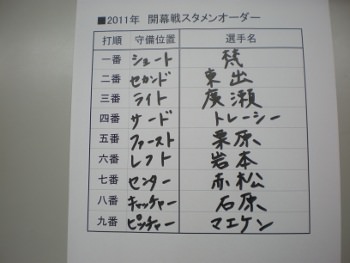 ■2011年 開幕戦スタメンオーダー
打順 守備位置 選手名
一番 ショート 梵
二番 セカンド 東出
三番 ライト 廣瀬
四番 サード トレーシー
五番 ファースト 栗原
六番 レフト 岩本
七番 センター 赤松
八番 キャッチャー 石原
九番 ピッチャー マエケン